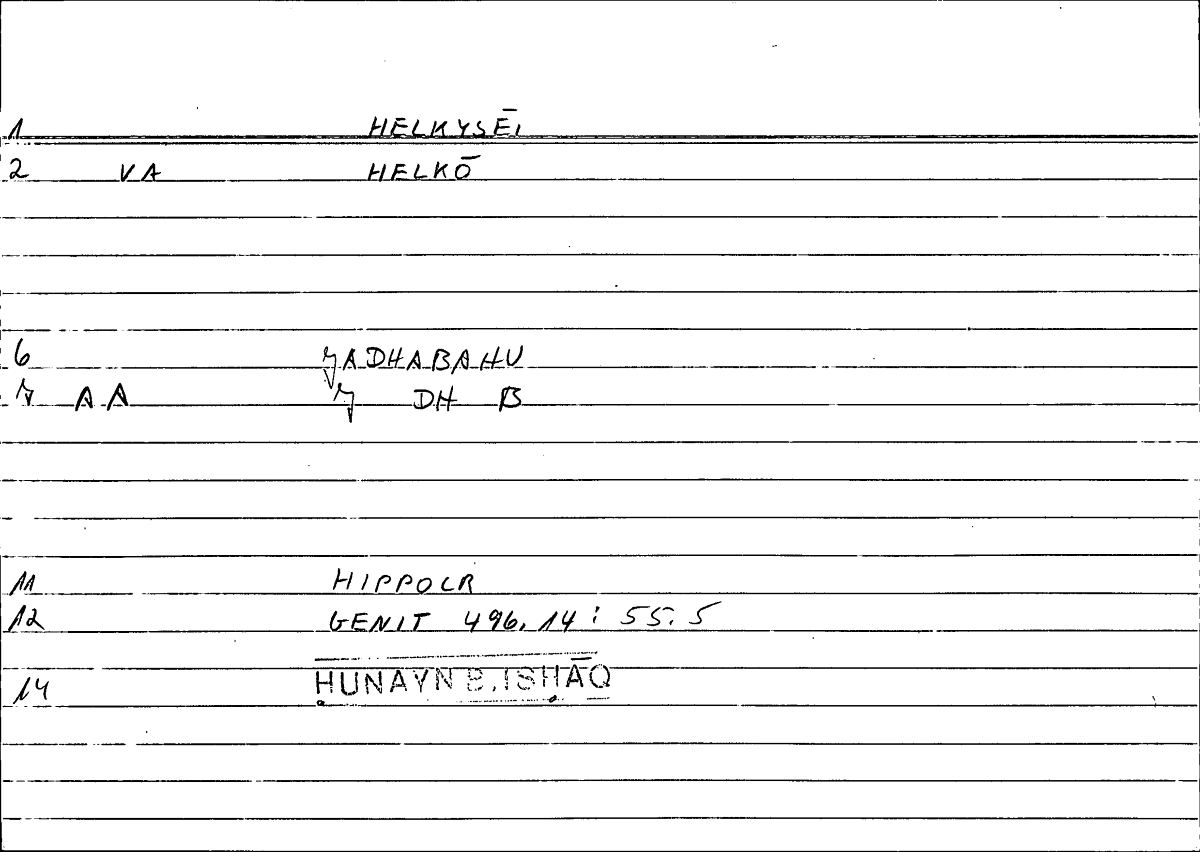 1 HELKYSĒI
2 VA HELKŌ
6 JADHABAHU
7 AA J DH B
11 HIPPOCR
12 GENIT 496,14 : 55,5
14 ḤUNAYN B. ISḤĀQ